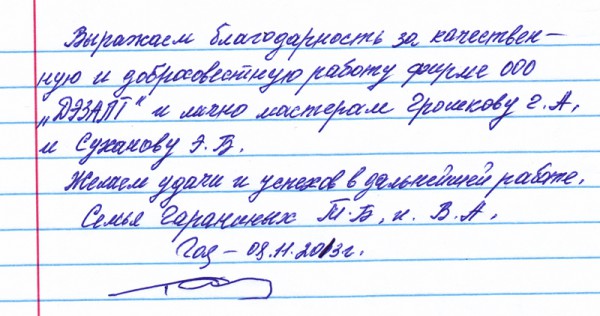 Выражаем благодарность за качествен-
ную и добросовестную работу фирме ООО
„ДЭЗАЛТ" и лично мастерам Громкову Г.А,
и Суханову Э.Б.
Желаем удачи и успехов в дальнейшей работе.
Семья Гараниных Т.Б, и. В.А,
08.11.2013г.